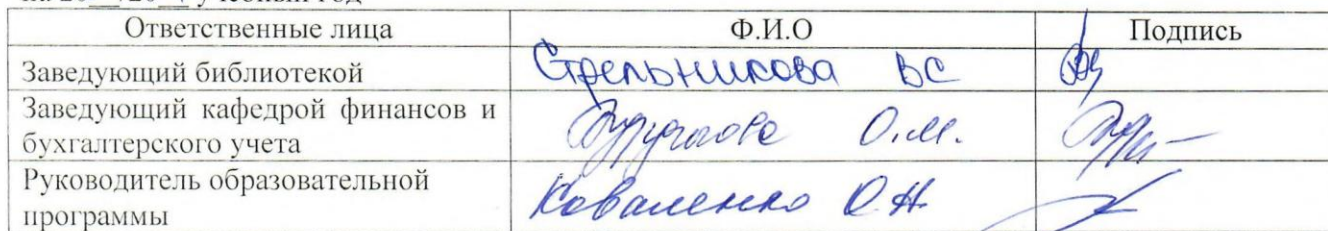 Ответственные лица Ф.И.О Подпись
Заведующий библиотекой Стрельникова ВС
Заведующий кафедрой финансов и
бухгалтерского учета О.М.
Руководитель образовательной
программы Коваленко О Н